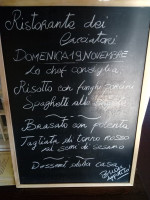 Ristorante dei
Cacciatori
DOMENICA 19 NOVEMBRE
Lo chef consiglia
Risotto con funghi porcini
Spaghetti allo
Brasato con polenta
Tagliata di tonno rosso
sui semi di sesamo
Dessert della casa
Buon
Appetito